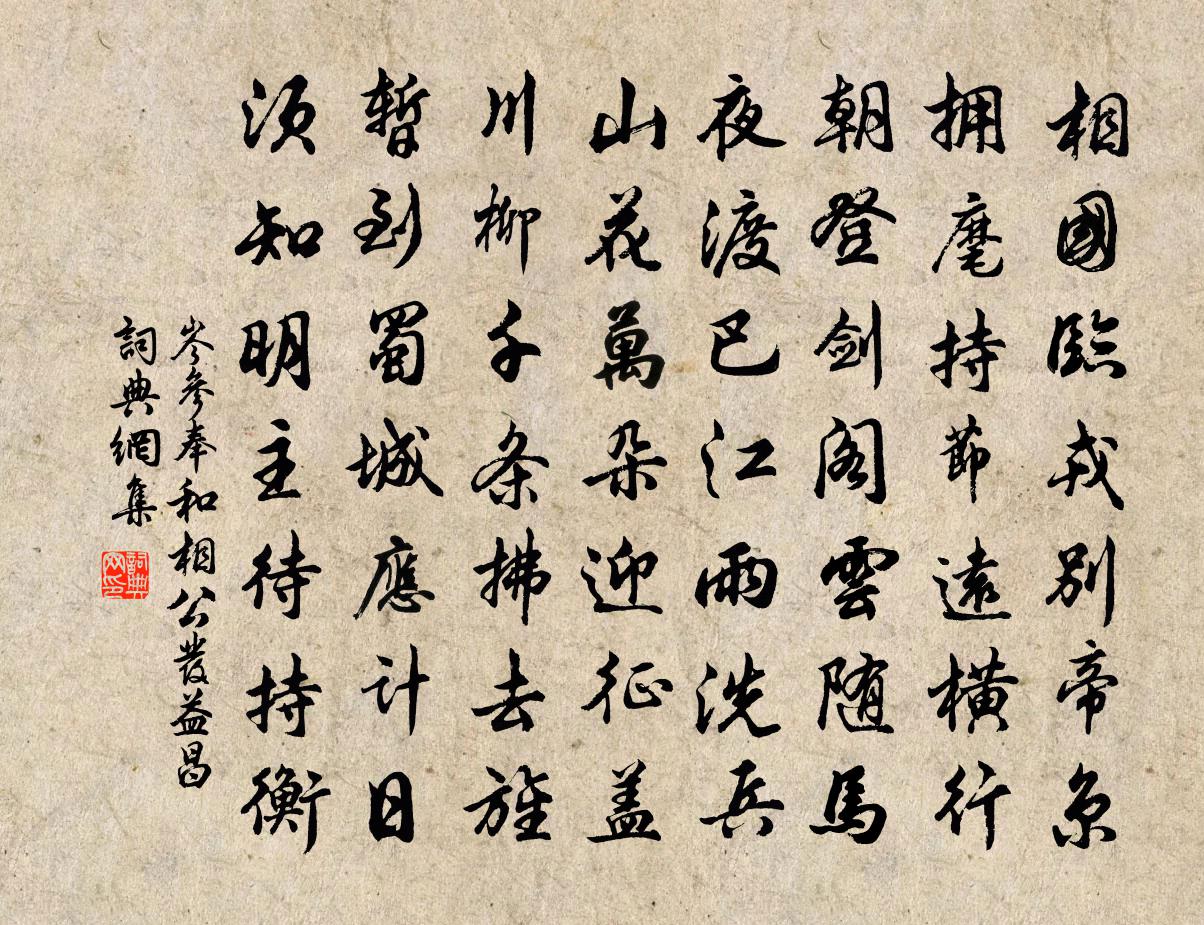 相國臨戎別帝京
拥麾持節遠橫行
朝登劍阁雲随馬
夜渡巴江雨洗兵
山花萬朵迎征盖
川柳千条拂去旌
暫到蜀城應计日
须知明主待持衡
岑參奉和相公發益昌
詞典網集
詞典网印